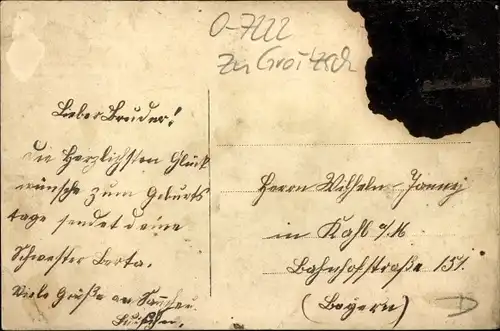 O-7222
Zu Groitzsch
Lieber Bruder!
Die Herzlichsten Glück
wünsche zum Geburts
tage sendet deine
Schwester Berta.
Viele Grüße an
Herrn Wilhelm
in Kahl a/M
Bahnhofstraße 151.
(Bayern)
D